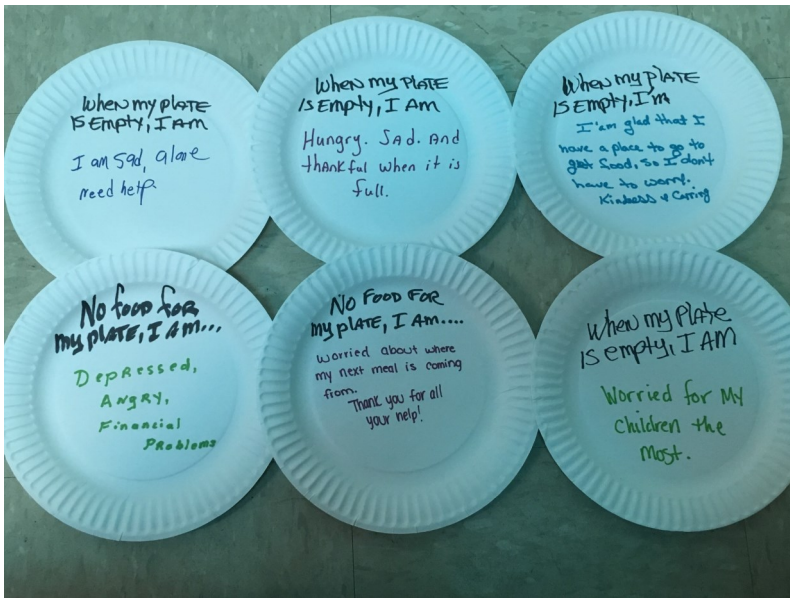 When my PLATE
IS Empty, I AM
I am sad, alone
need help.
When my PLATE
IS Empty, I AM
Hungry. Sad. And
thankful when it is
full.
When my plate
IS Empty, I'm
I'am glad that I
have a place to go to
get food, so I don't
have to worry.
Kindness & Carring
No food for
my PLATE, I AM...
Depressed,
Angry,
Financial
Problems
NO FOOD FOR
my PLATE, I AM....
Worried about where
my next meal is coming
from.
Thank you for all
your help!
When my Plate
IS empty, I AM
Worried for My
Children the
Most.